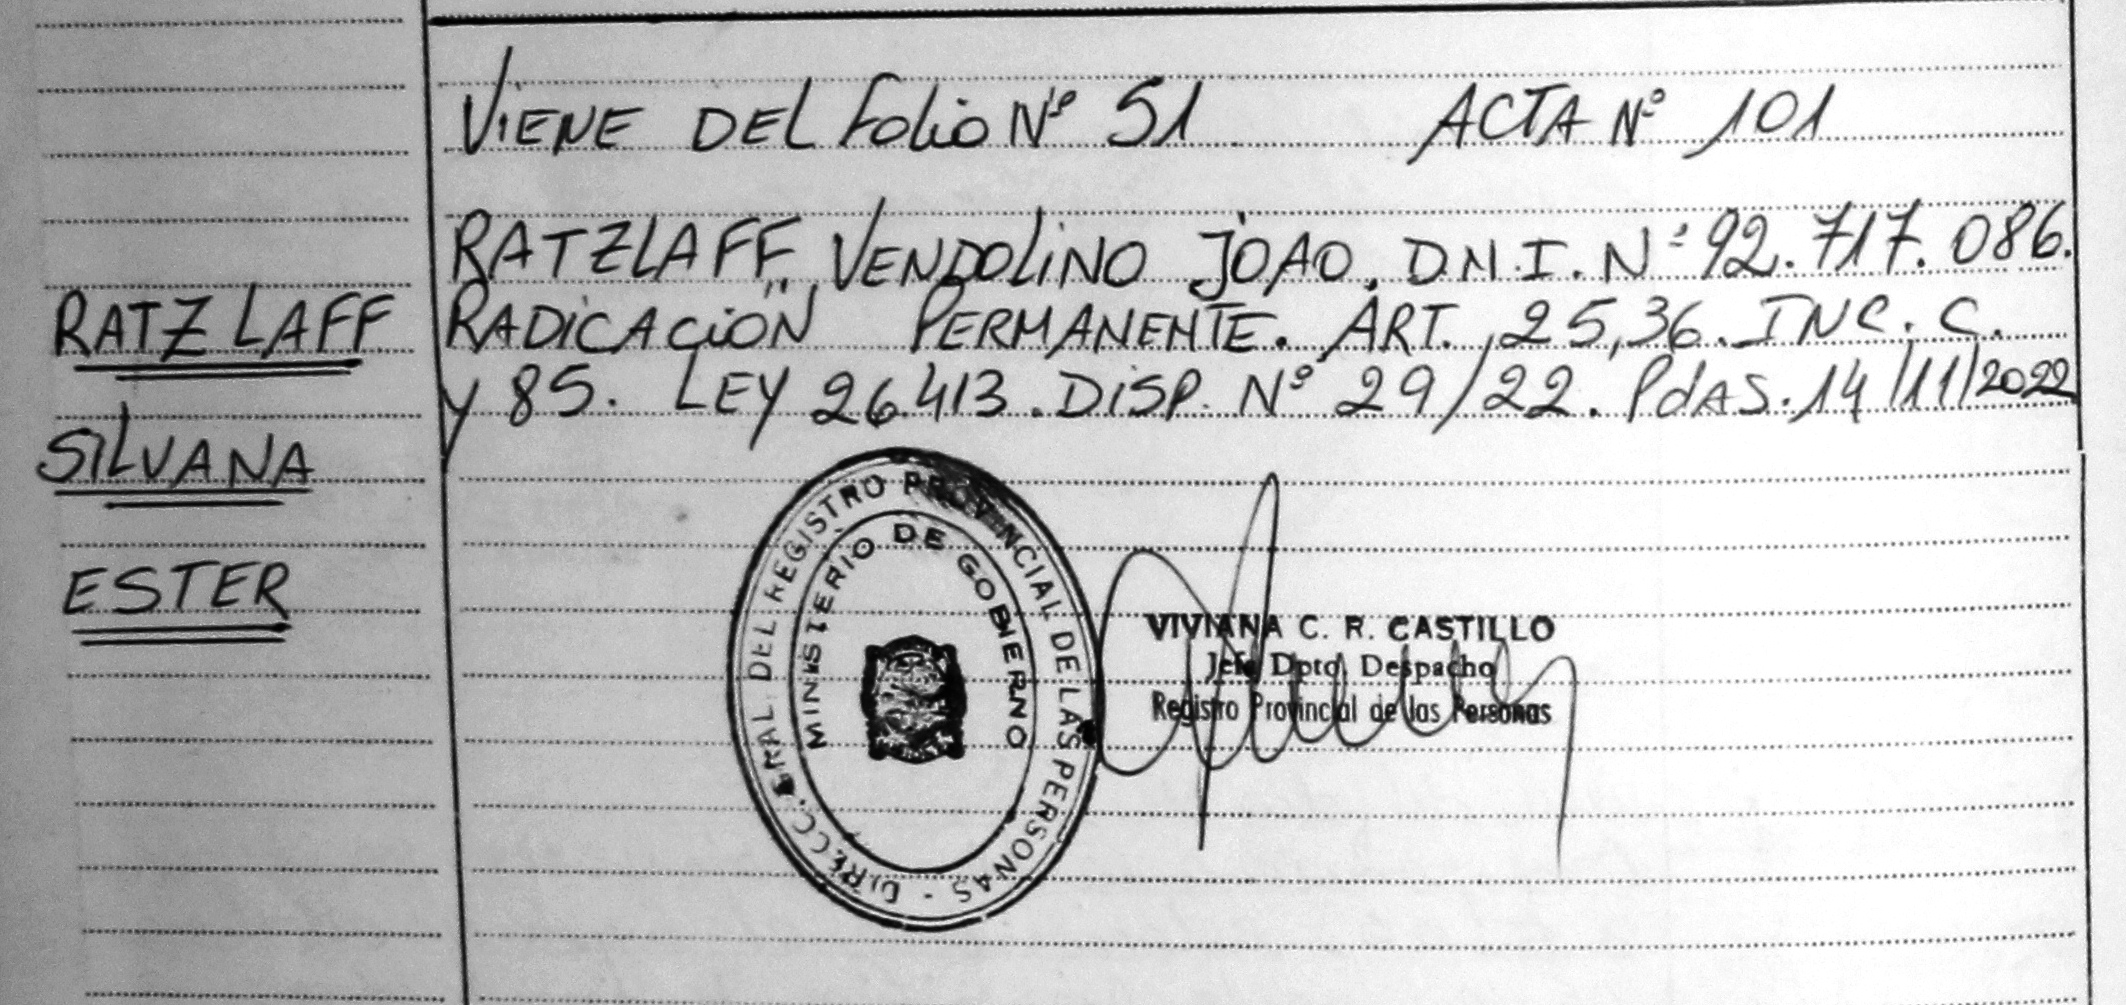 VIENE DEL FOLIO Nº 51 ACTA Nº 101
RATZLAFF, VENDOLINO JOAO. D.N.I. Nº 92.717.086.
RADICACION PERMANENTE. ART. 25,36. INC. C.
y 85. LEY 26.413. DISP. Nº 29/22. PdAS. 14/11/2022
RATZLAFF
SILVANA
ESTER
DIRECC. GRAL. DEL REGISTRO PROVINCIAL DE LAS PERSONAS -
MINISTERIO DE GOBIERNO
VIVIANA C. R. CASTILLO
Jefe Dpto. Despacho
Registro Provincial de las Personas